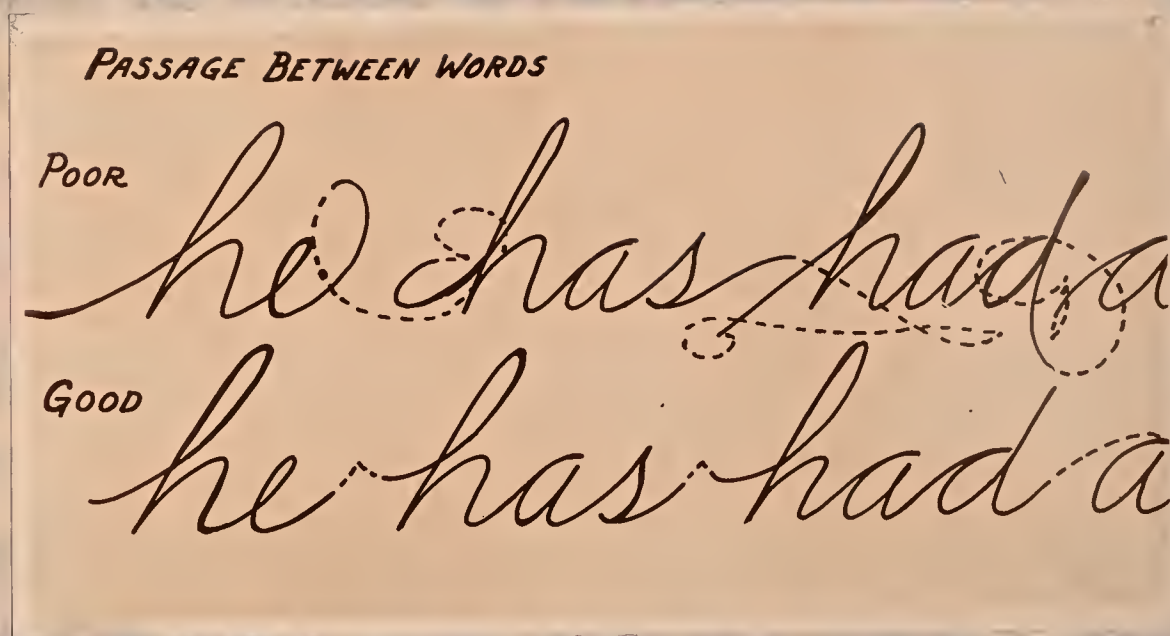 PASSAGE BETWEEN WORDS
POOR
he has had a
GOOD
he has had a